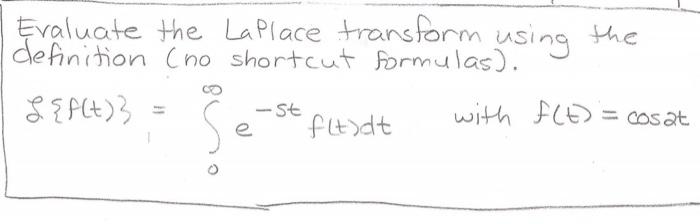 Evaluate the LaPlace transform using the
definition (no shortcut formulas).
ℒ{f(t)} = ∫₀^∞ e^{-st} f(t)dt with f(t) = cos2t